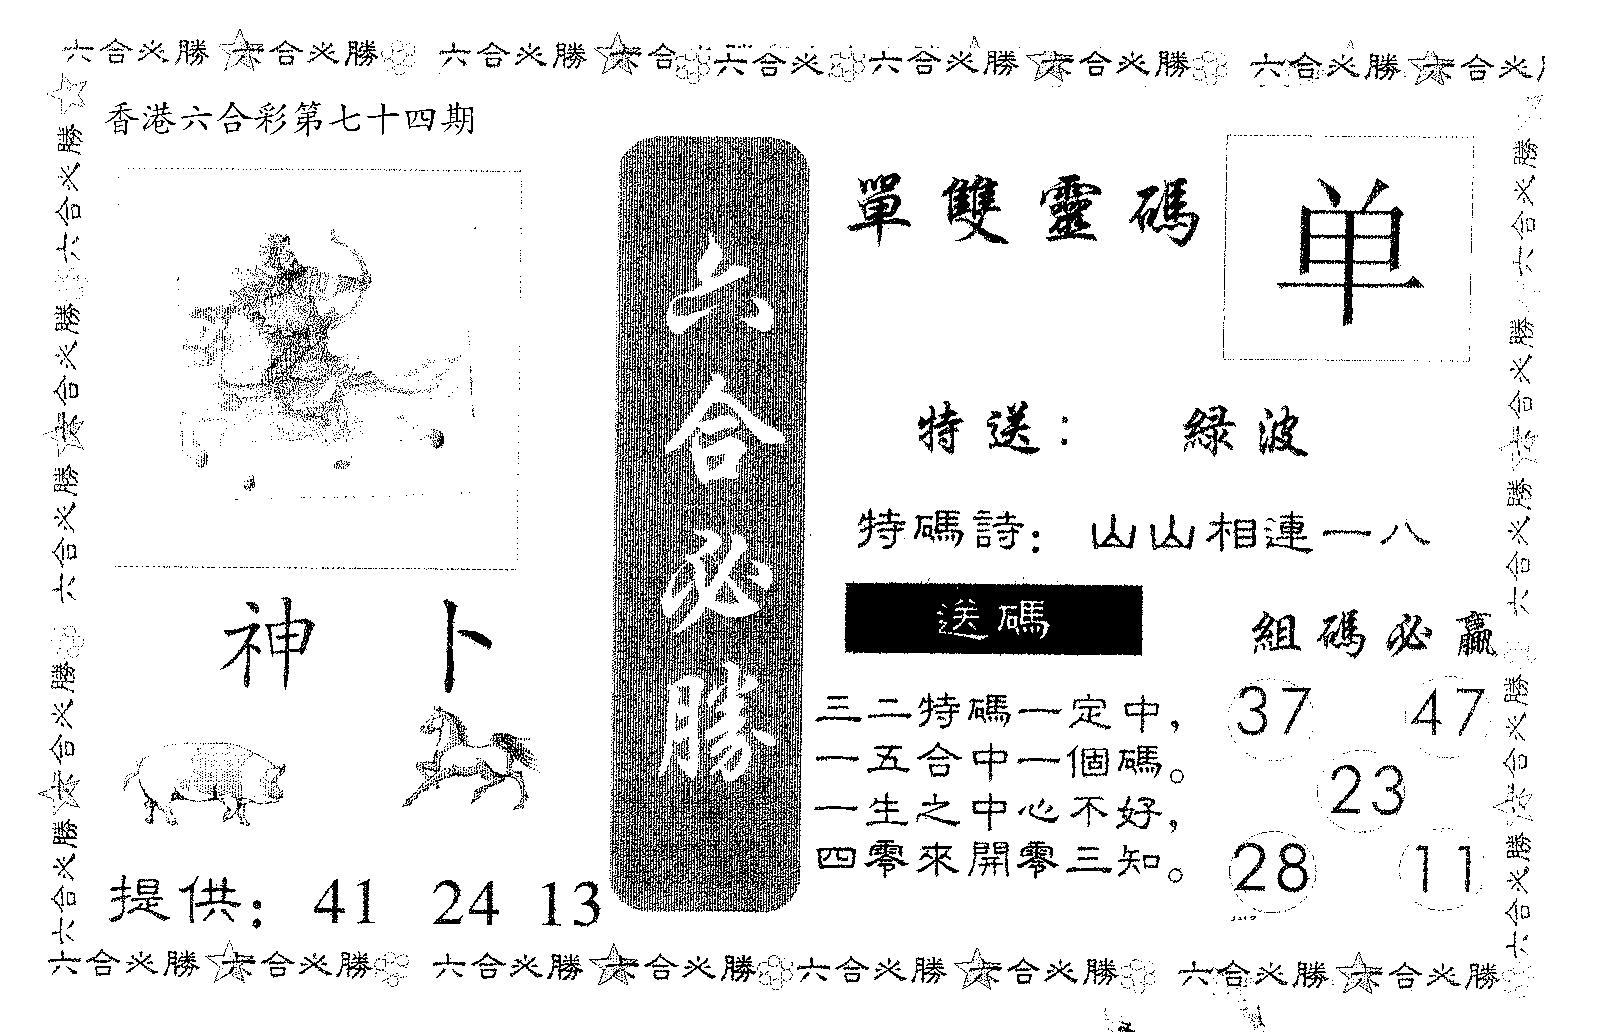 六合必勝 六合必勝 六合必勝 六合 六合必 六合必勝 六合必勝 六合必勝 六合必
香港六合彩第七十四期
六合必勝 六合必勝 六合必勝 六合必勝 六合必勝
神 卜
提供： 41 24 13
六合必勝
單雙靈碼
单
特送： 緑波
特碼詩：山山相連一八
送碼
三二特碼一定中，
一五合中一個碼。
一生之中心不好，
四零來開零三知。
組碼必贏
37 47
23
28 11
六合必勝 六合必勝 六合必勝 六合必勝 六合必勝
六合必勝 六合必勝 六合必勝 六合必勝 六合必勝 六合必勝 六合必勝 六合必勝